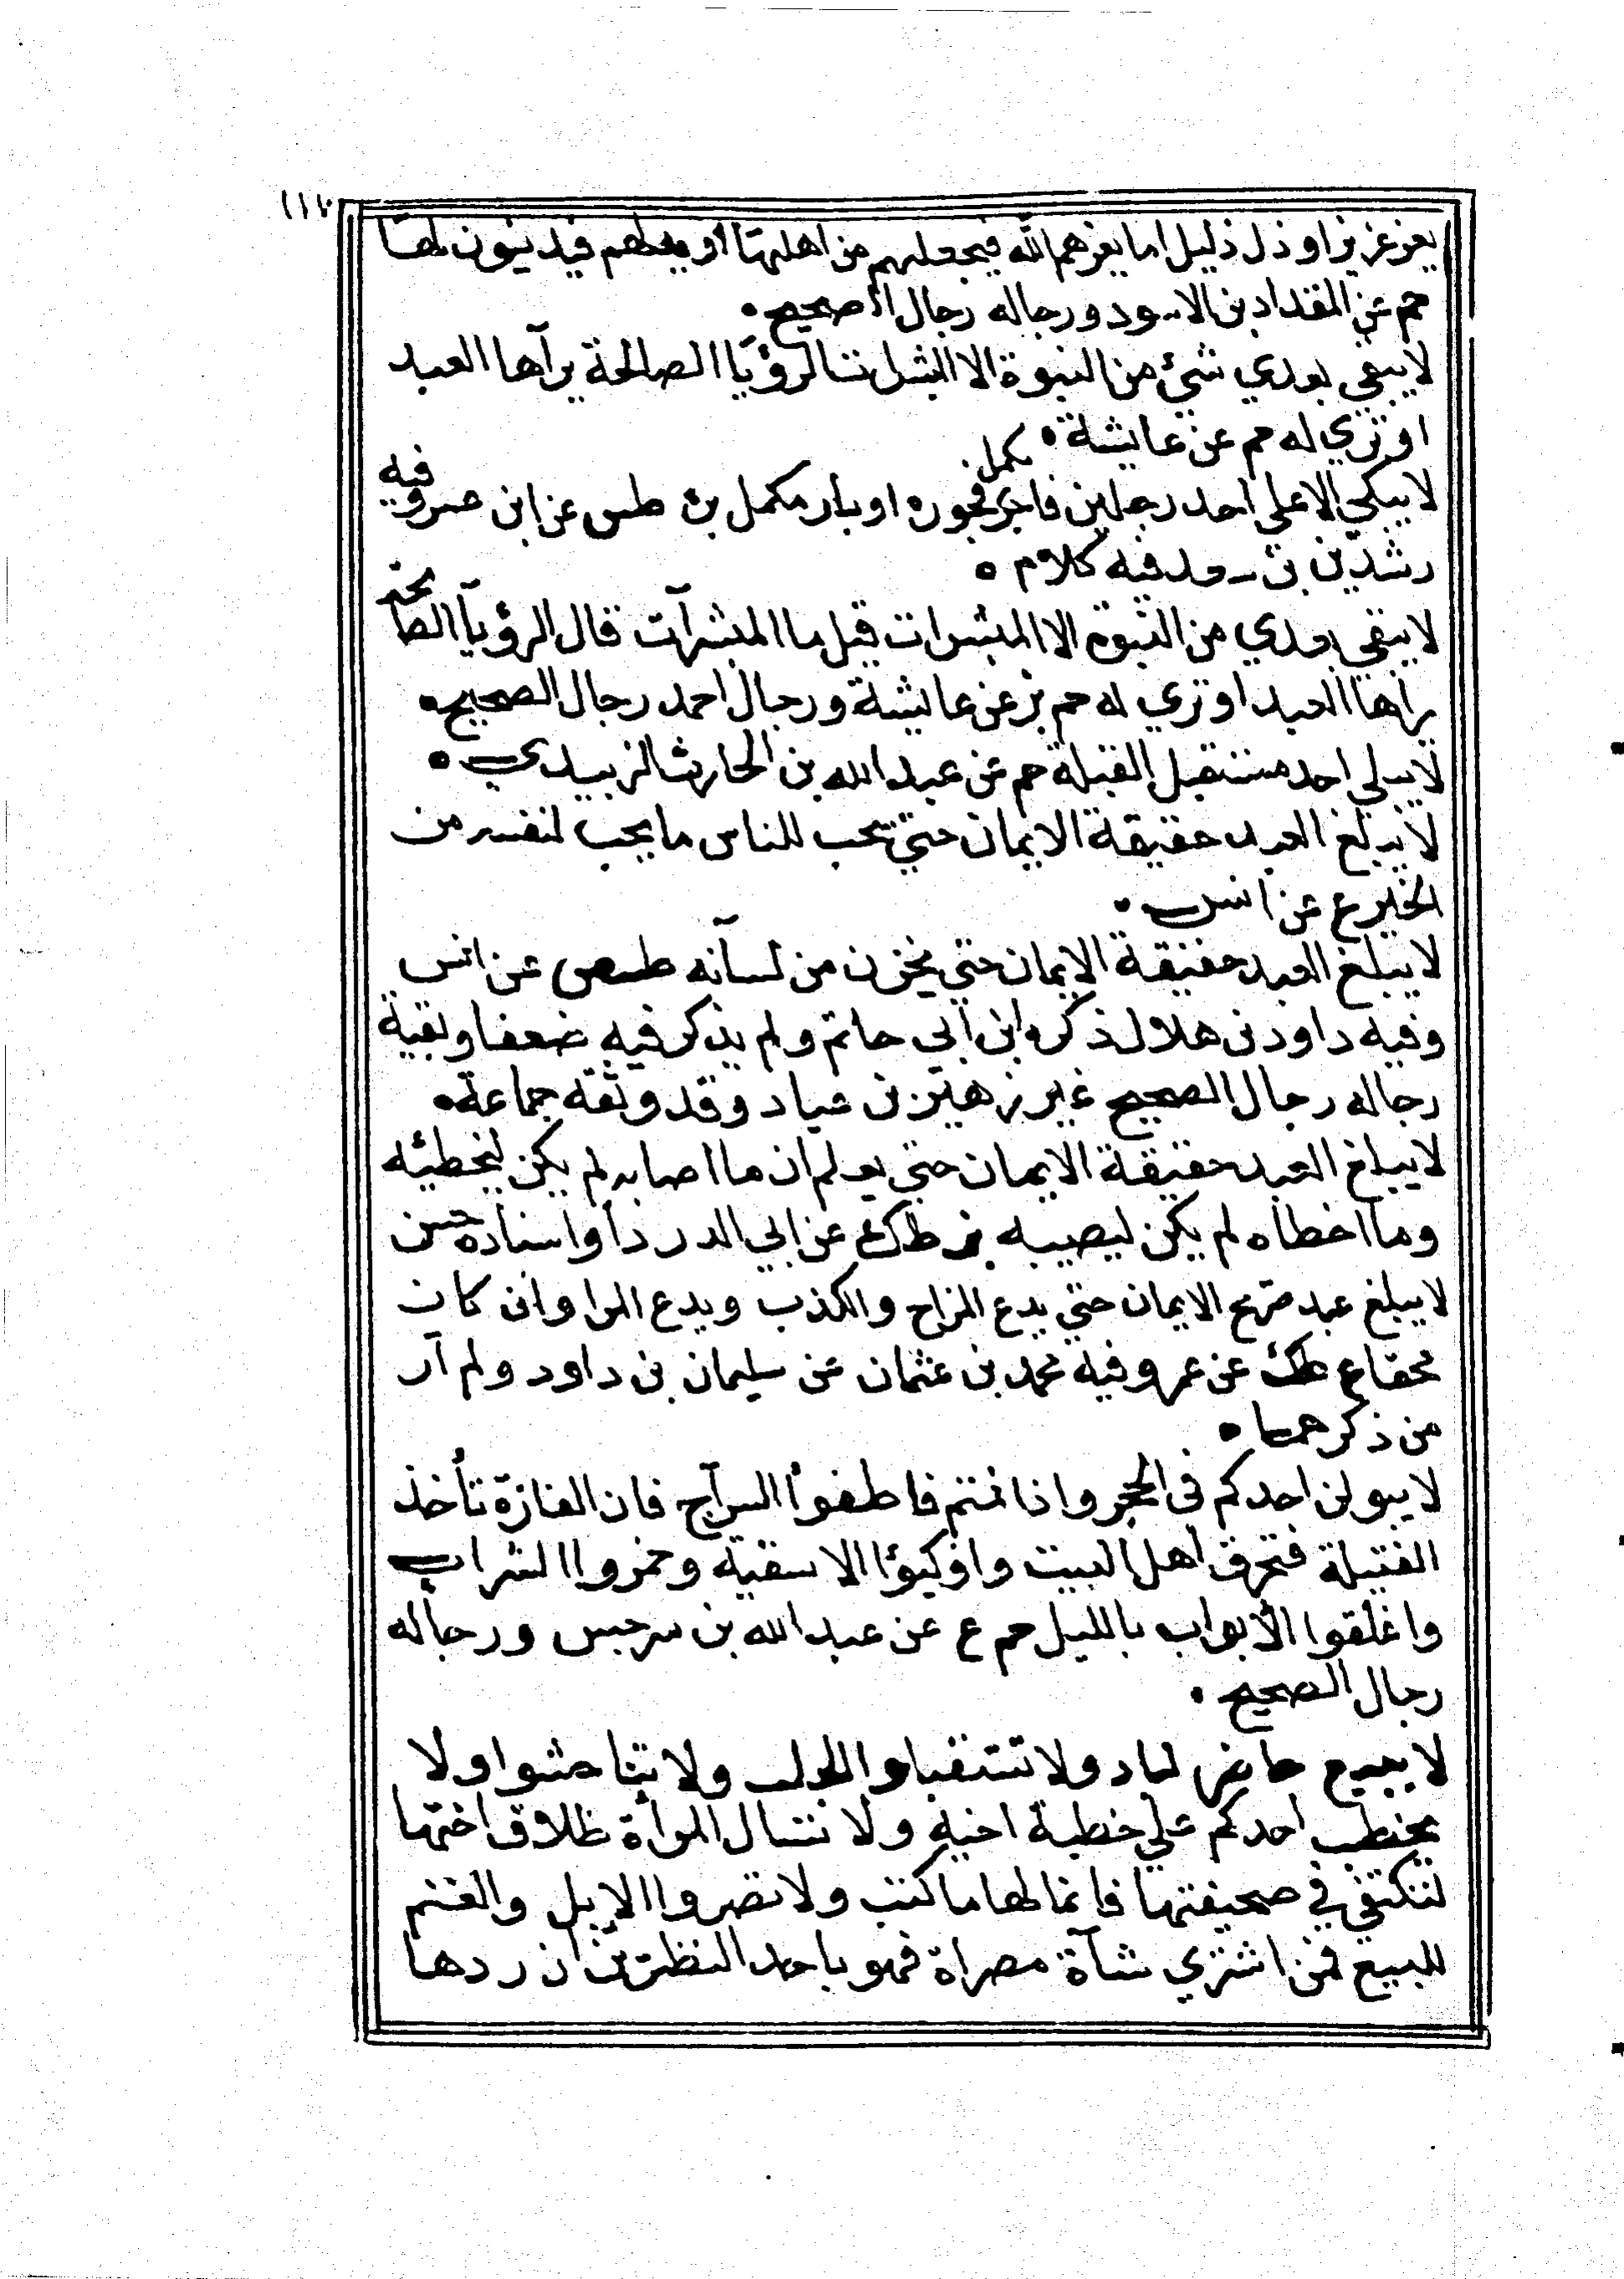 يعز عزيز او ذل ذليل اما يعزهم الله فيجعلهم من اهلها او يذلهم فيدينون لها
حم عن المقداد بن الاسود ورجاله رجال الصحيح
لا يبقي بعدي شئ من النبوة الا المبشرات الرؤيا الصالحة يراها العبد
او تري له حم عن عايشة
لا يبكي الا علي احد رجلين فاجر مكمل فجوره او بار مكمل بره طس عن ابن عمر وفيه
رشدين بن سعد فيه كلام
لا يبقي بعدي من النبوة الا المبشرات قيل ما المبشرات قال الرؤيا الصالحة
يراها العبد او تري له حم بز عن عايشة ورجال احمد رجال الصحيح
لا يبولي احد مستقبل القبلة حم عن عبد الله بن الحارث الزبيدي
لا يبلغ العبد حقيقة الايمان حتي يحب للناس ما يحب لنفسه من
الخير ع عن انس
لا يبلغ العبد حقيقة الايمان حتي يخزن من لسانه طسص عن انس
وفيه داود بن هلال ذكره ابن ابي حاتم ولم يذكر فيه ضعفا وبقية
رجاله رجال الصحيح غير زهير بن عباد وقد وثقه جماعة
لا يبلغ العبد حقيقة الايمان حتي يعلم ان ما اصابه لم يكن ليخطيئه
وما اخطاه لم يكن ليصيبه بز طك عن ابي الدردا واسناده حسن
لا يبلغ عبد صريح الايمان حتي يدع المزاح والكذب ويدع المرا وان كان
محقا ع طك عن عمر وفيه محمد بن عثمان عن سليمان بن داود ولم ار
من ذكرهما
لا يبولن احدكم في الجحر واذا نمتم فاطفوا السراج فان الفارة تأخذ
الفتيلة فتحرق اهل البيت واوكيؤا الاسقية وخمروا الشراب
واغلقوا الابواب بالليل حم ع عن عبد الله بن سرجس ورجاله
رجال الصحيح
لا يبيع حاضر لباد ولا تستقبلوا الجلب ولا تناجشوا ولا
يخطب احدكم علي خطبة اخيه ولا تسال المرأة طلاق اختها
لتكتفي في صحيفتها فانما لها ما كتب ولا تصروا الابل والغنم
للبيع فمن اشتري شاة مصراة فهو باحد النظرين ان ردها